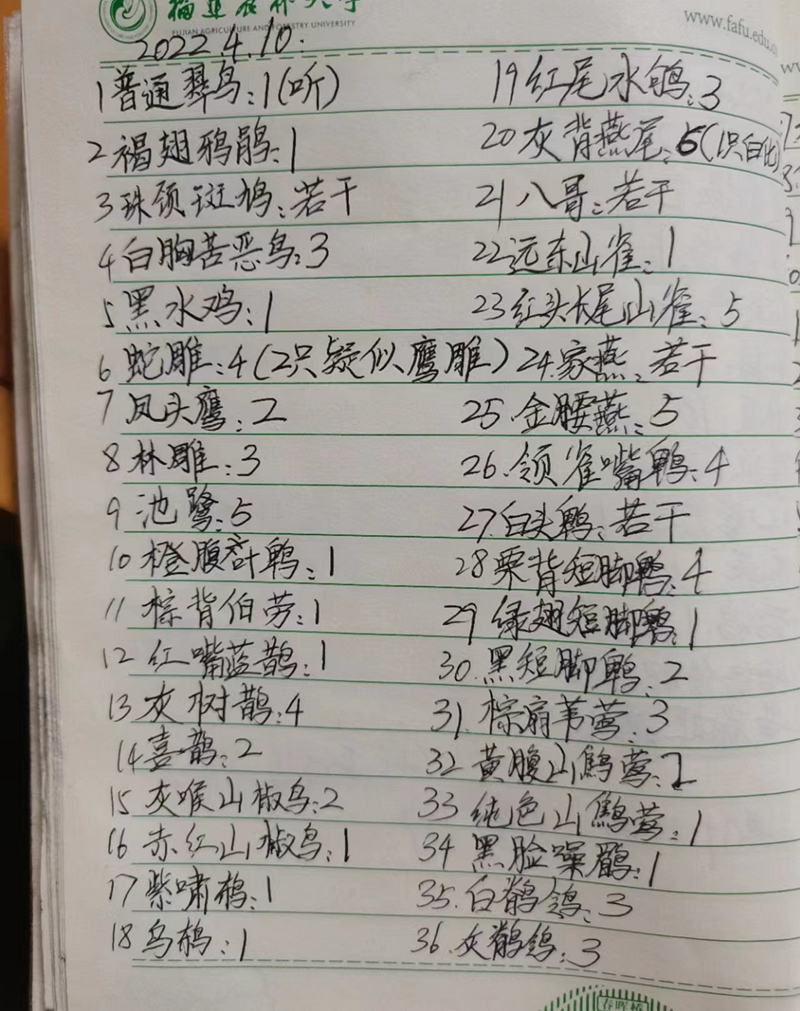 福建农林大学
FUJIAN AGRICULTURE AND FORESTRY UNIVERSITY
www.fafu.edu.c
2022.4.10.
1 普通翠鸟:1(听)
2 褐翅鸦鹃:1
3 珠颈斑鸠:若干
4 白胸苦恶鸟:3
5 黑水鸡:1
6 蛇雕:4(2只疑似鹰雕)
7 凤头鹰:2
8 林雕:3
9 池鹭:5
10 橙腹叶鹎:1
11 棕背伯劳:1
12 红嘴蓝鹊:1
13 灰树鹊:4
14 喜鹊:2
15 灰喉山椒鸟:2
16 赤红山椒鸟:1
17 紫啸鸫:1
18 乌鸫:1
19 红尾水鸲:3
20 灰背燕尾:5(1只白化)
21 八哥:若干
22 远东山雀:1
23 红头长尾山雀:5
24.家燕:若干
25.金腰燕:5
26.领雀嘴鹎:4
27.白头鹎:若干
28 栗背短脚鹎:4
29 绿翅短脚鹎:1
30.黑短脚鹎:2
31.棕扇苇莺:3
32 黄腹山鹪莺:2
33 纯色山鹪莺:1
34 黑脸噪鹛:1
35.白鹡鸰:3
36.灰鹡鸰:3
春晖桥